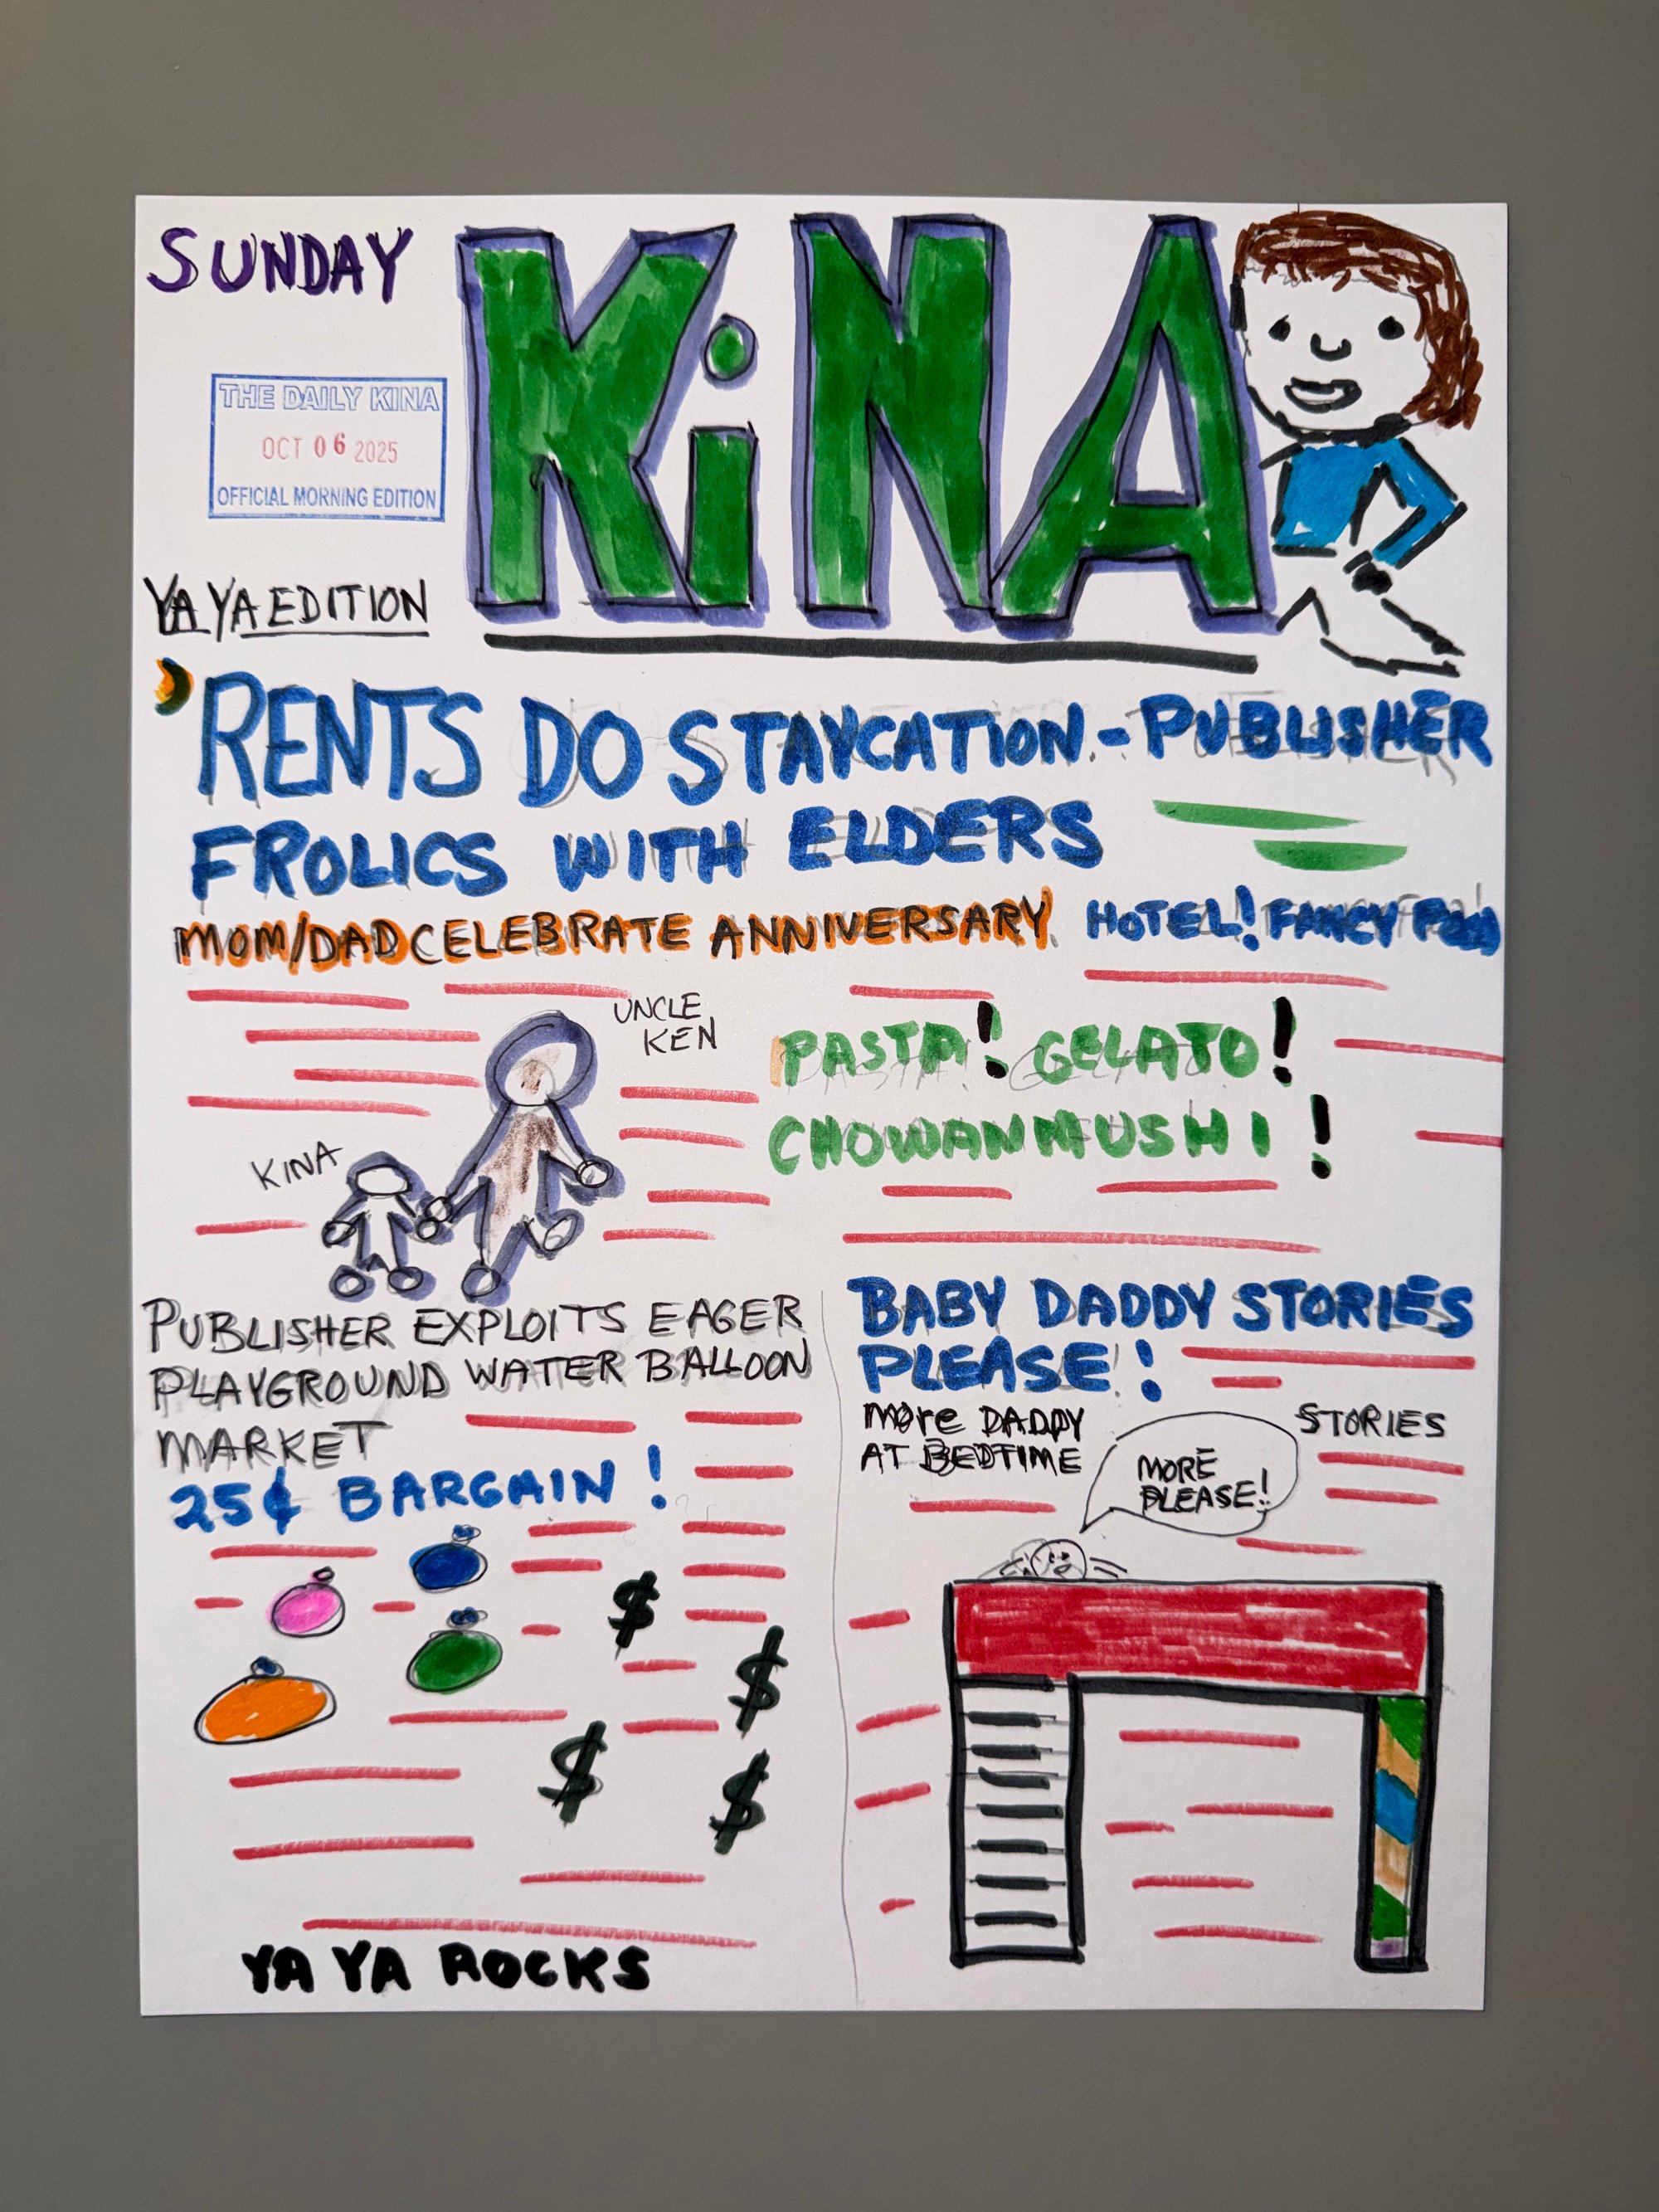 SUNDAY
KiNA
THE DAILY KINA
OCT 06 2025
OFFICIAL MORNING EDITION
YA YA EDITION
'RENTS DO STAYCATION - PUBLISHER
FROLICS WITH ELDERS
MOM/DAD CELEBRATE ANNIVERSARY
HOTEL! FANCY FOOD
UNCLE
KEN
KINA
PASTA! GELATO!
CHOWANMUSHI!
PUBLISHER EXPLOITS EAGER
PLAYGROUND WATER BALLOON
MARKET
25¢ BARGAIN!
$
$
$
$
YA YA ROCKS
BABY DADDY STORIES
PLEASE!
more DADDY STORIES
AT BEDTIME
MORE
PLEASE!